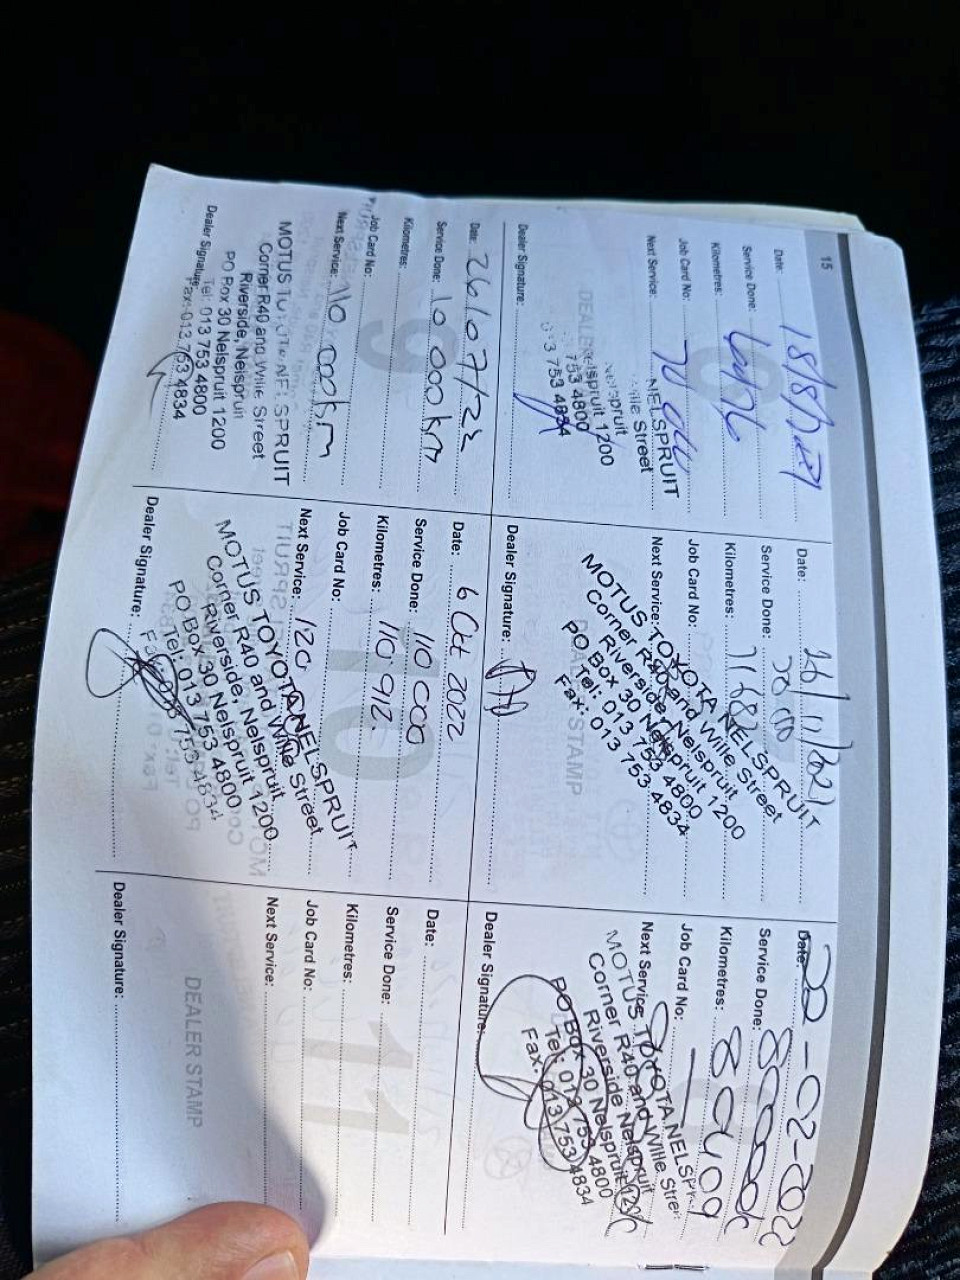 15
Date: 18/8/2021
Service Done:
Kilometres:
Job Card No: 70 000
Next Service:
NELSPRUIT
Wille Street
Nelspruit
Nelspruit 1200
753 4800
013 753 4834
DEALER
Dealer Signature:
Date: 26/11/2021
Service Done: 70 000
Kilometres: 71682
Job Card No:
Next Service:
MOTUS TOYOTA NELSPRUIT
Corner R40 and Wille Street
Riverside, Nelspruit
PO Box 30 Nelspruit 1200
Tel: 013 753 4800
Fax: 013 753 4834
STAMP
Dealer Signature:
Date: 22-02-2022
Service Done: 80000
Kilometres: 80409
Job Card No:
Next Service:
MOTUS TOYOTA NELSPR
Corner R40 and Wille Street
Riverside Nelspruit
PO Box 30 Nelspruit 12
Tel: 013 753 4800
Fax: 013 753 4834
Dealer Signature:
9
Date: 26/07/22
Service Done: 10 000km
Kilometres:
Job Card No:
Next Service: 110 000km
MOTUS TOYOTA NELSPRUIT
Corner R40 and Wille Street
Riverside, Nelspruit
PO Box 30 Nelspruit 1200
Tel: 013 753 4800
Fax: 013 753 4834
Dealer Signature:
10
Date: 6 Oct 2022
Service Done: 110 000
Kilometres: 110 912
Job Card No:
Next Service: 120 000
MOTUS TOYOTA NELSPRUIT
Corner R40 and Wille Street
Riverside, Nelspruit,
PO Box 30 Nelspruit 1200
Tel: 013 753 4800
Fax: 013 753 4834
Dealer Signature:
11
Date:
Service Done:
Kilometres:
Job Card No:
Next Service:
DEALER STAMP
Dealer Signature: